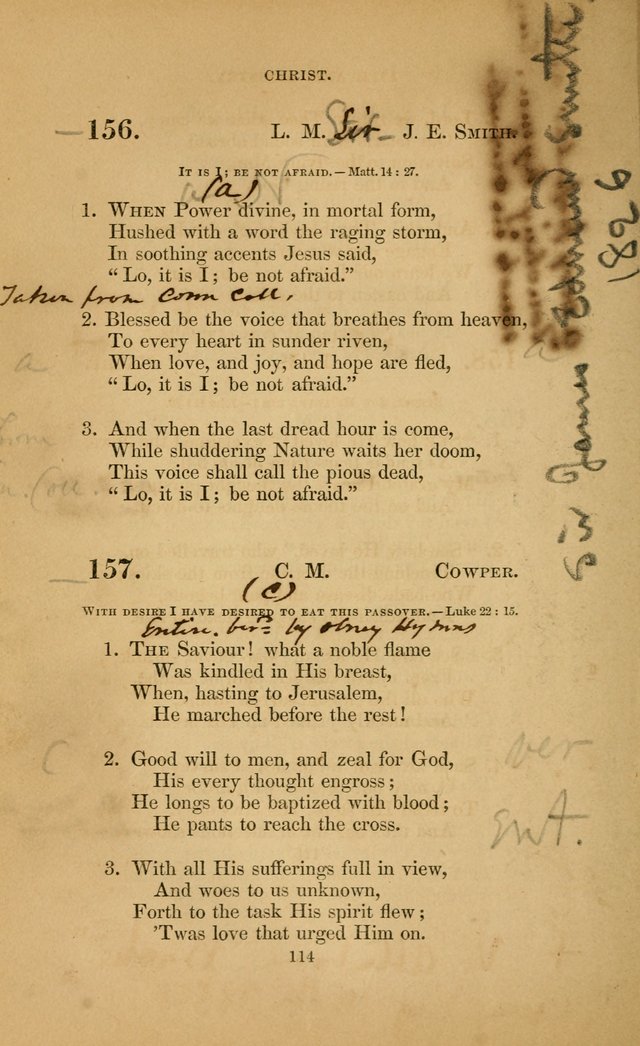 CHRIST.
156. L. M. Sir J. E. SMITH.
IT IS I; BE NOT AFRAID.—Matt. 14 : 27.
(a)
1. WHEN Power divine, in mortal form,
Hushed with a word the raging storm,
In soothing accents Jesus said,
“ Lo, it is I; be not afraid.”
Taken from Conn Coll.
2. Blessed be the voice that breathes from heaven,
To every heart in sunder riven,
When love, and joy, and hope are fled,
“ Lo, it is I; be not afraid.”
a
3. And when the last dread hour is come,
While shuddering Nature waits her doom,
This voice shall call the pious dead,
“ Lo, it is I; be not afraid.”
from
Coll.
Sir James Edward Smith
1826
157. C. M. COWPER.
(c)
WITH DESIRE I HAVE DESIRED TO EAT THIS PASSOVER.—Luke 22 : 15.
Entire. ver. by Olney Hymns
1. THE Saviour! what a noble flame
Was kindled in His breast,
When, hasting to Jerusalem,
He marched before the rest!
2. Good will to men, and zeal for God,
His every thought engross;
He longs to be baptized with blood;
He pants to reach the cross.
C
ver
Ent.
3. With all His sufferings full in view,
And woes to us unknown,
Forth to the task His spirit flew;
'Twas love that urged Him on.
114